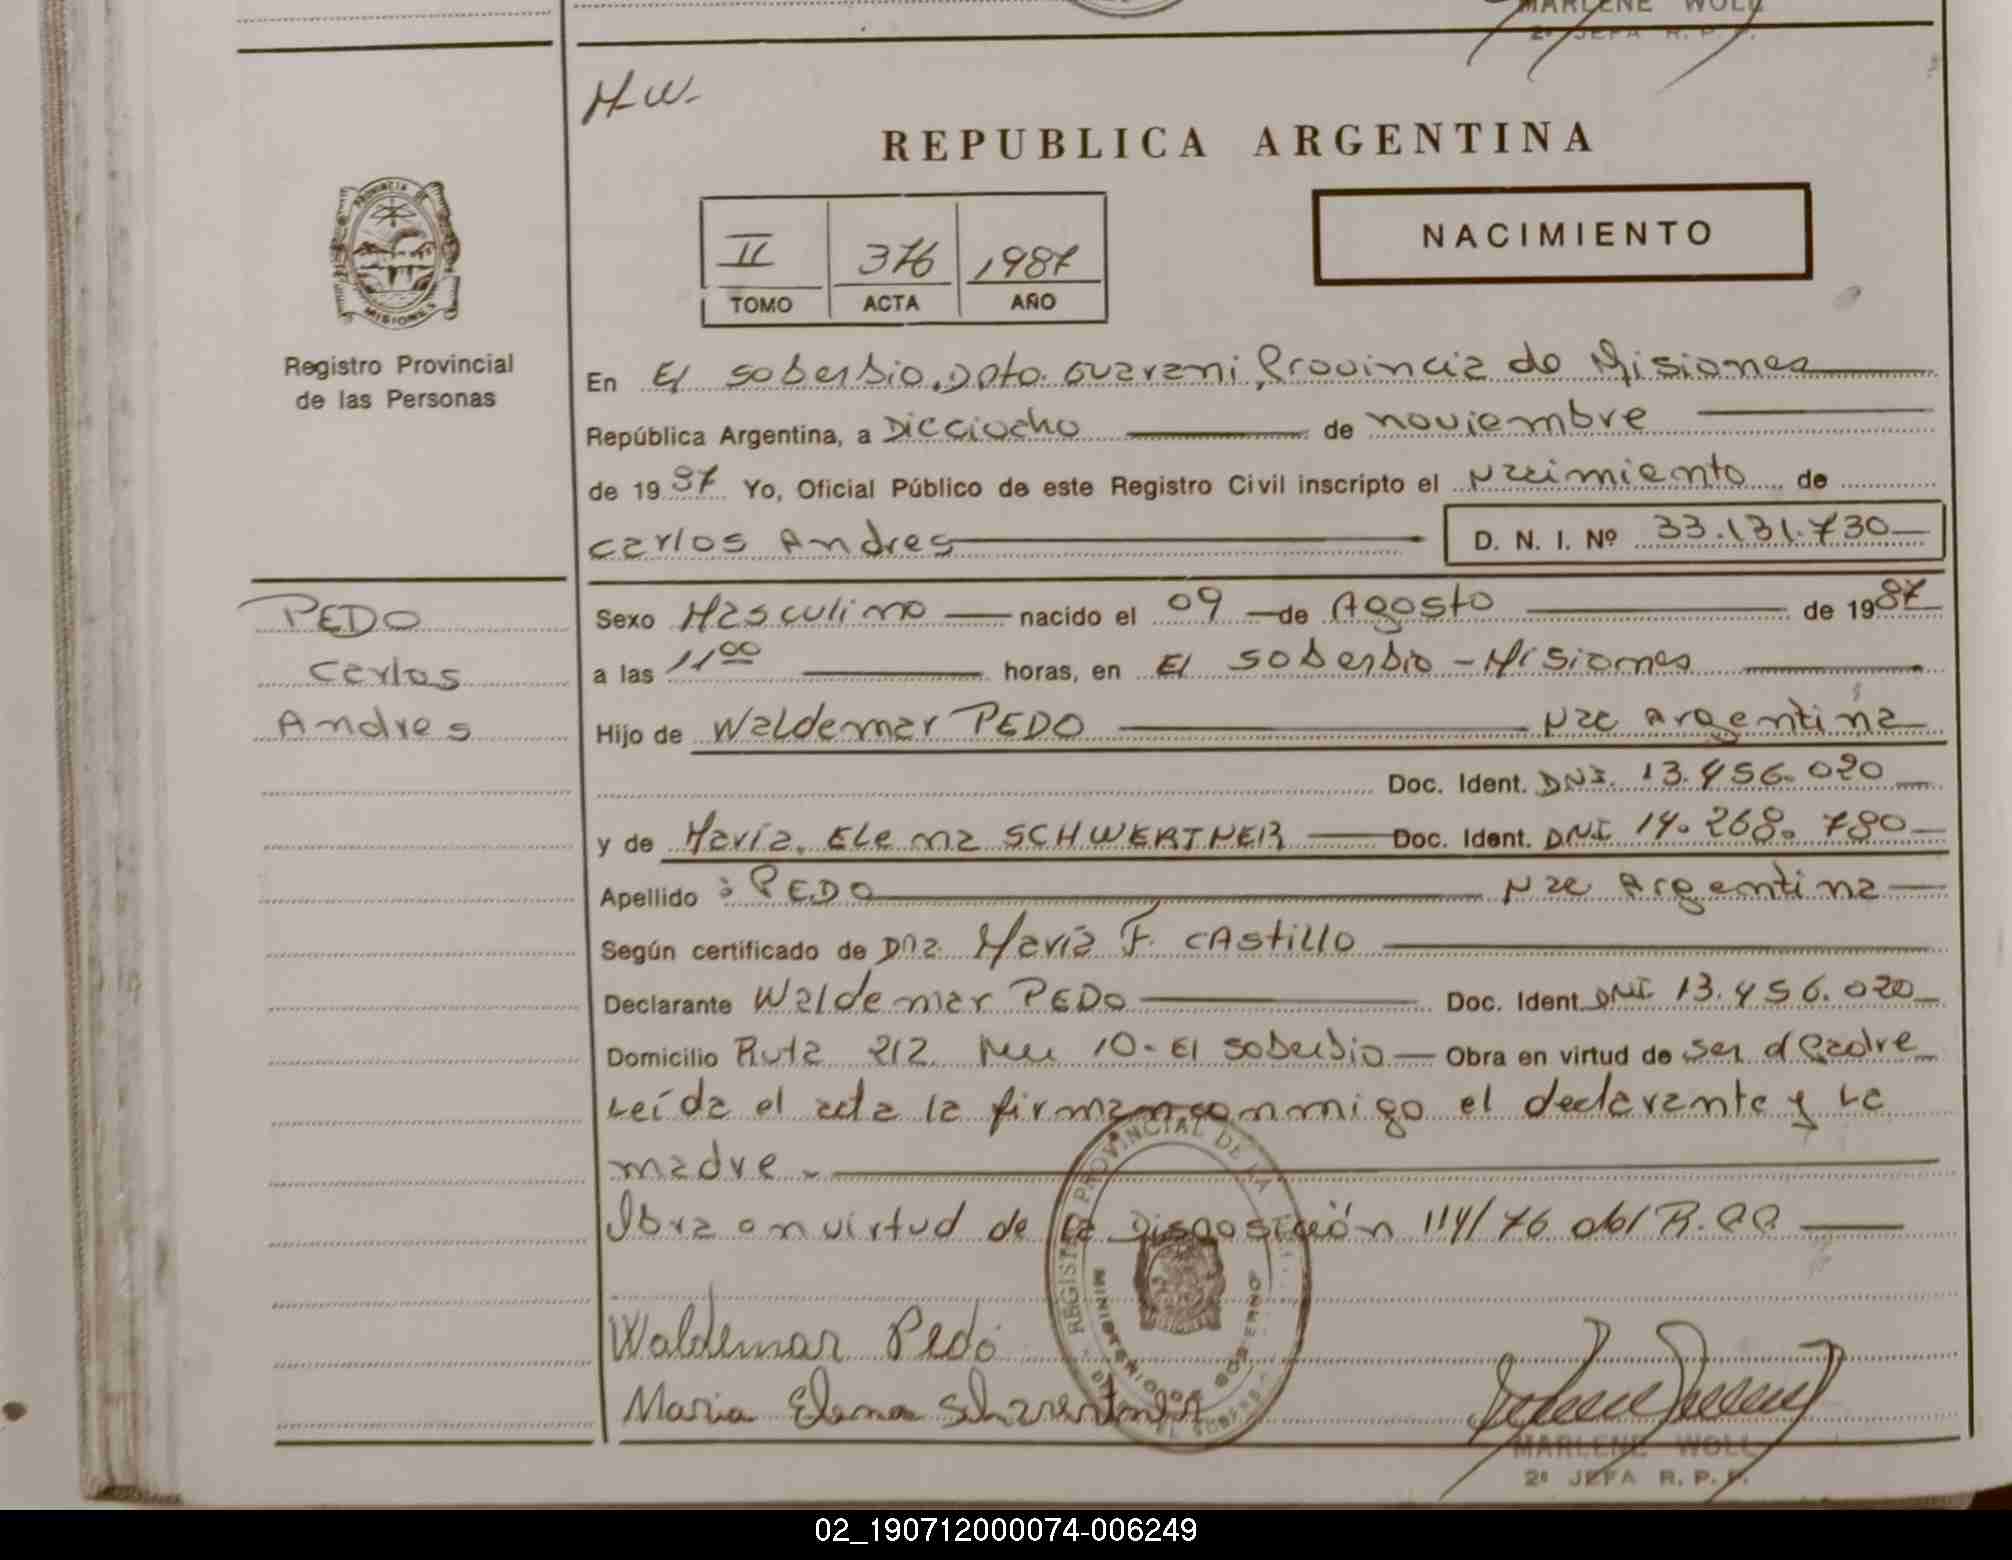 MARLENE WOLL
2ª JEFA R. P. P.
H-W-
REPUBLICA ARGENTINA
NACIMIENTO
II 376 1987
TOMO ACTA AÑO
PROVINCIA DE
MISIONES
Registro Provincial
de las Personas
En El Soberbio, Dpto. Guarani, Provincia de Misiones
República Argentina, a Dieciocho de noviembre
de 1987 Yo, Oficial Público de este Registro Civil inscripto el Nacimiento de
Carlos Andres D. N. I. Nº 33.131.730
PEDO
Carlos
Andres
Sexo Masculino nacido el 09 de Agosto de 1987
a las 11 00 horas, en El Soberbio - Misiones
Hijo de Waldemar PEDO Nac Argentina
Doc. Ident. DNI. 13.456.020
y de María Elena SCHWERTNER Doc. Ident. DNI 14.268.780
Apellido : PEDO Nac Argentina
Según certificado de Dña. María F. Castillo
Declarante Waldemar PEDO Doc. Ident. DNI 13.456.020
Domicilio Ruta 212 10 - El Soberbio Obra en virtud de ser el Padre
Leída el acta la firman conmigo el declarante y la
madre.
Obra en virtud de la Disposición 114/76 del R.
REGISTRO PROVINCIAL DE LA
MINISTERIO DE GOBIERNO
EL SOBERBIO
Waldemar Pedo
Maria Elena Schwertner
MARLENE WOLL
2ª JEFA R. P. P.
02_190712000074-006249